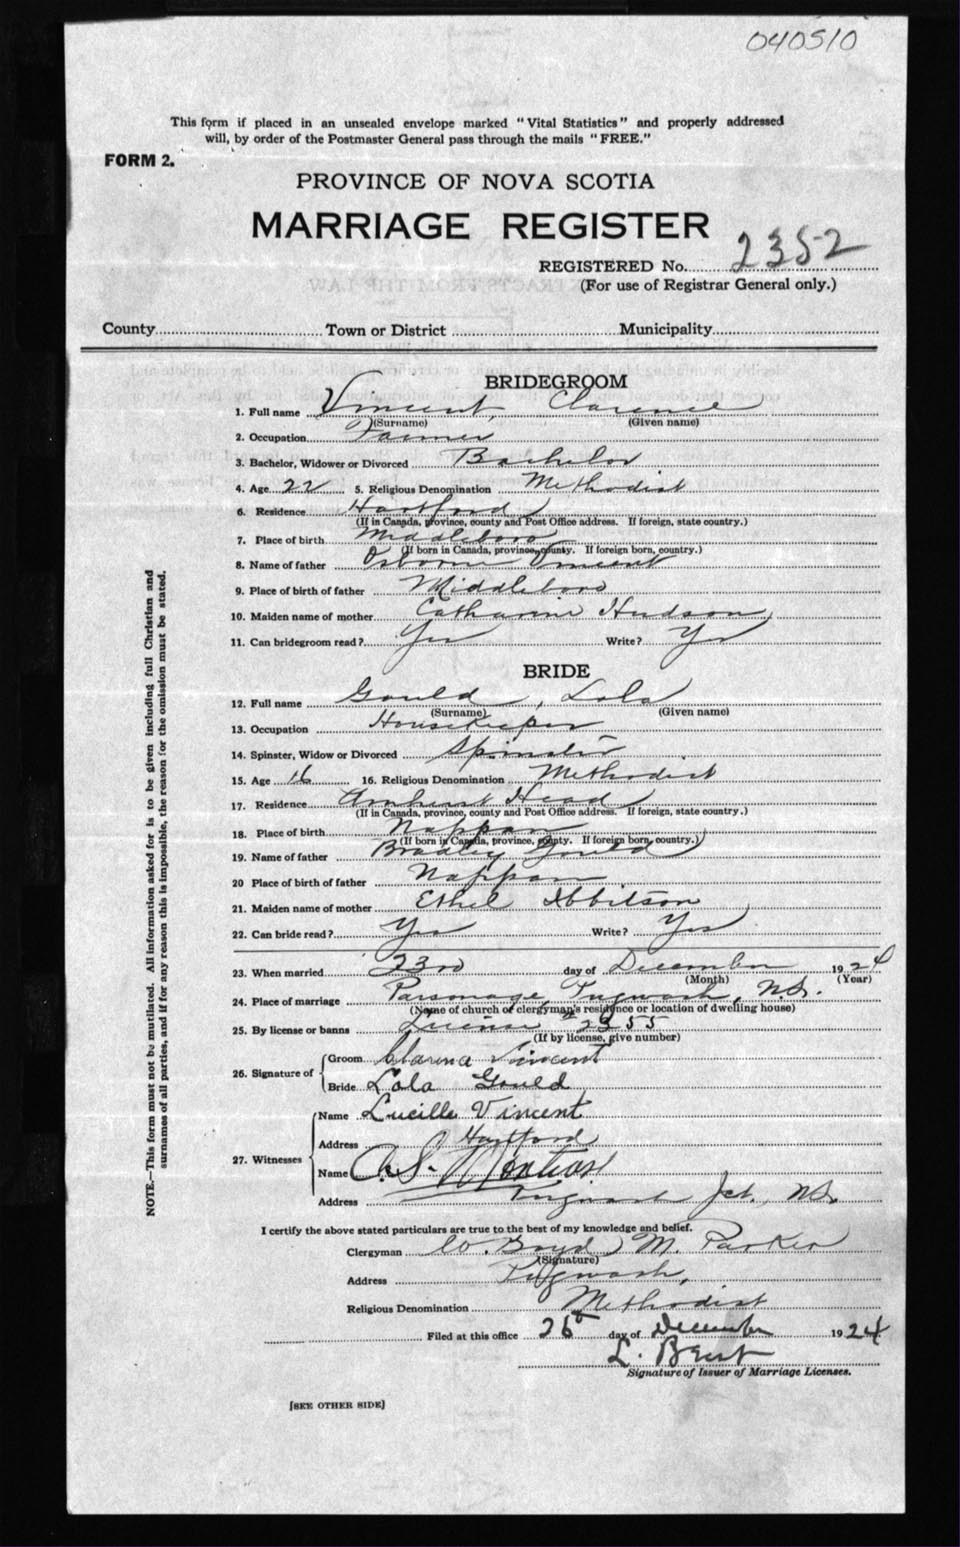 040510
This form if placed in an unsealed envelope marked "Vital Statistics" and properly addressed
will, by order of the Postmaster General pass through the mails "FREE."
FORM 2.
PROVINCE OF NOVA SCOTIA
MARRIAGE REGISTER
REGISTERED No. 2352
(For use of Registrar General only.)
County Town or District Municipality
BRIDEGROOM
1. Full name Vincent, Clarence
(Surname) (Given name)
2. Occupation Farmer
3. Bachelor, Widower or Divorced Bachelor
4. Age 22 5. Religious Denomination Methodist
6. Residence Hartford
(If in Canada, province, county and Post Office address. If foreign, state country.)
7. Place of birth Middleboro
(If born in Canada, province, county. If foreign born, country.)
8. Name of father Osborne Vincent
9. Place of birth of father Middleboro
10. Maiden name of mother Catharine Hudson
11. Can bridegroom read? Yes Write? Yes
BRIDE
12. Full name Gould, Lola
(Surname) (Given name)
13. Occupation Housekeeper
14. Spinster, Widow or Divorced Spinster
15. Age 16 16. Religious Denomination Methodist
17. Residence Amherst Head
(If in Canada, province, county and Post Office address. If foreign, state country.)
18. Place of birth Nappan
(If born in Canada, province, county. If foreign born, country.)
19. Name of father Bradley Gould
20 Place of birth of father Nappan
21. Maiden name of mother Ethel Ibbitson
22. Can bride read? Yes Write? Yes
23. When married 23rd day of December 1924
(Month) (Year)
24. Place of marriage Parsonage, Pugwash, N.S.
(Name of church or clergyman's residence or location of dwelling house)
25. By license or banns License 2355
(If by license, give number)
26. Signature of
Groom Clarence Vincent
Bride Lola Gould
27. Witnesses
Name Lucille Vincent
Address Hartford
Name A. S.
Address Pugwash Jct., N.S.
I certify the above stated particulars are true to the best of my knowledge and belief.
Clergyman W. Boyd M. Parker
(Signature)
Address Pugwash,
Religious Denomination Methodist
Filed at this office 26th day of December 1924
L. Brent
Signature of Issuer of Marriage Licenses.
[SEE OTHER SIDE]
NOTE.—This form must not be mutilated. All information asked for is to be given including full Christian and
surnames of all parties, and if for any reason this is impossible, the reason for the omission must be stated.